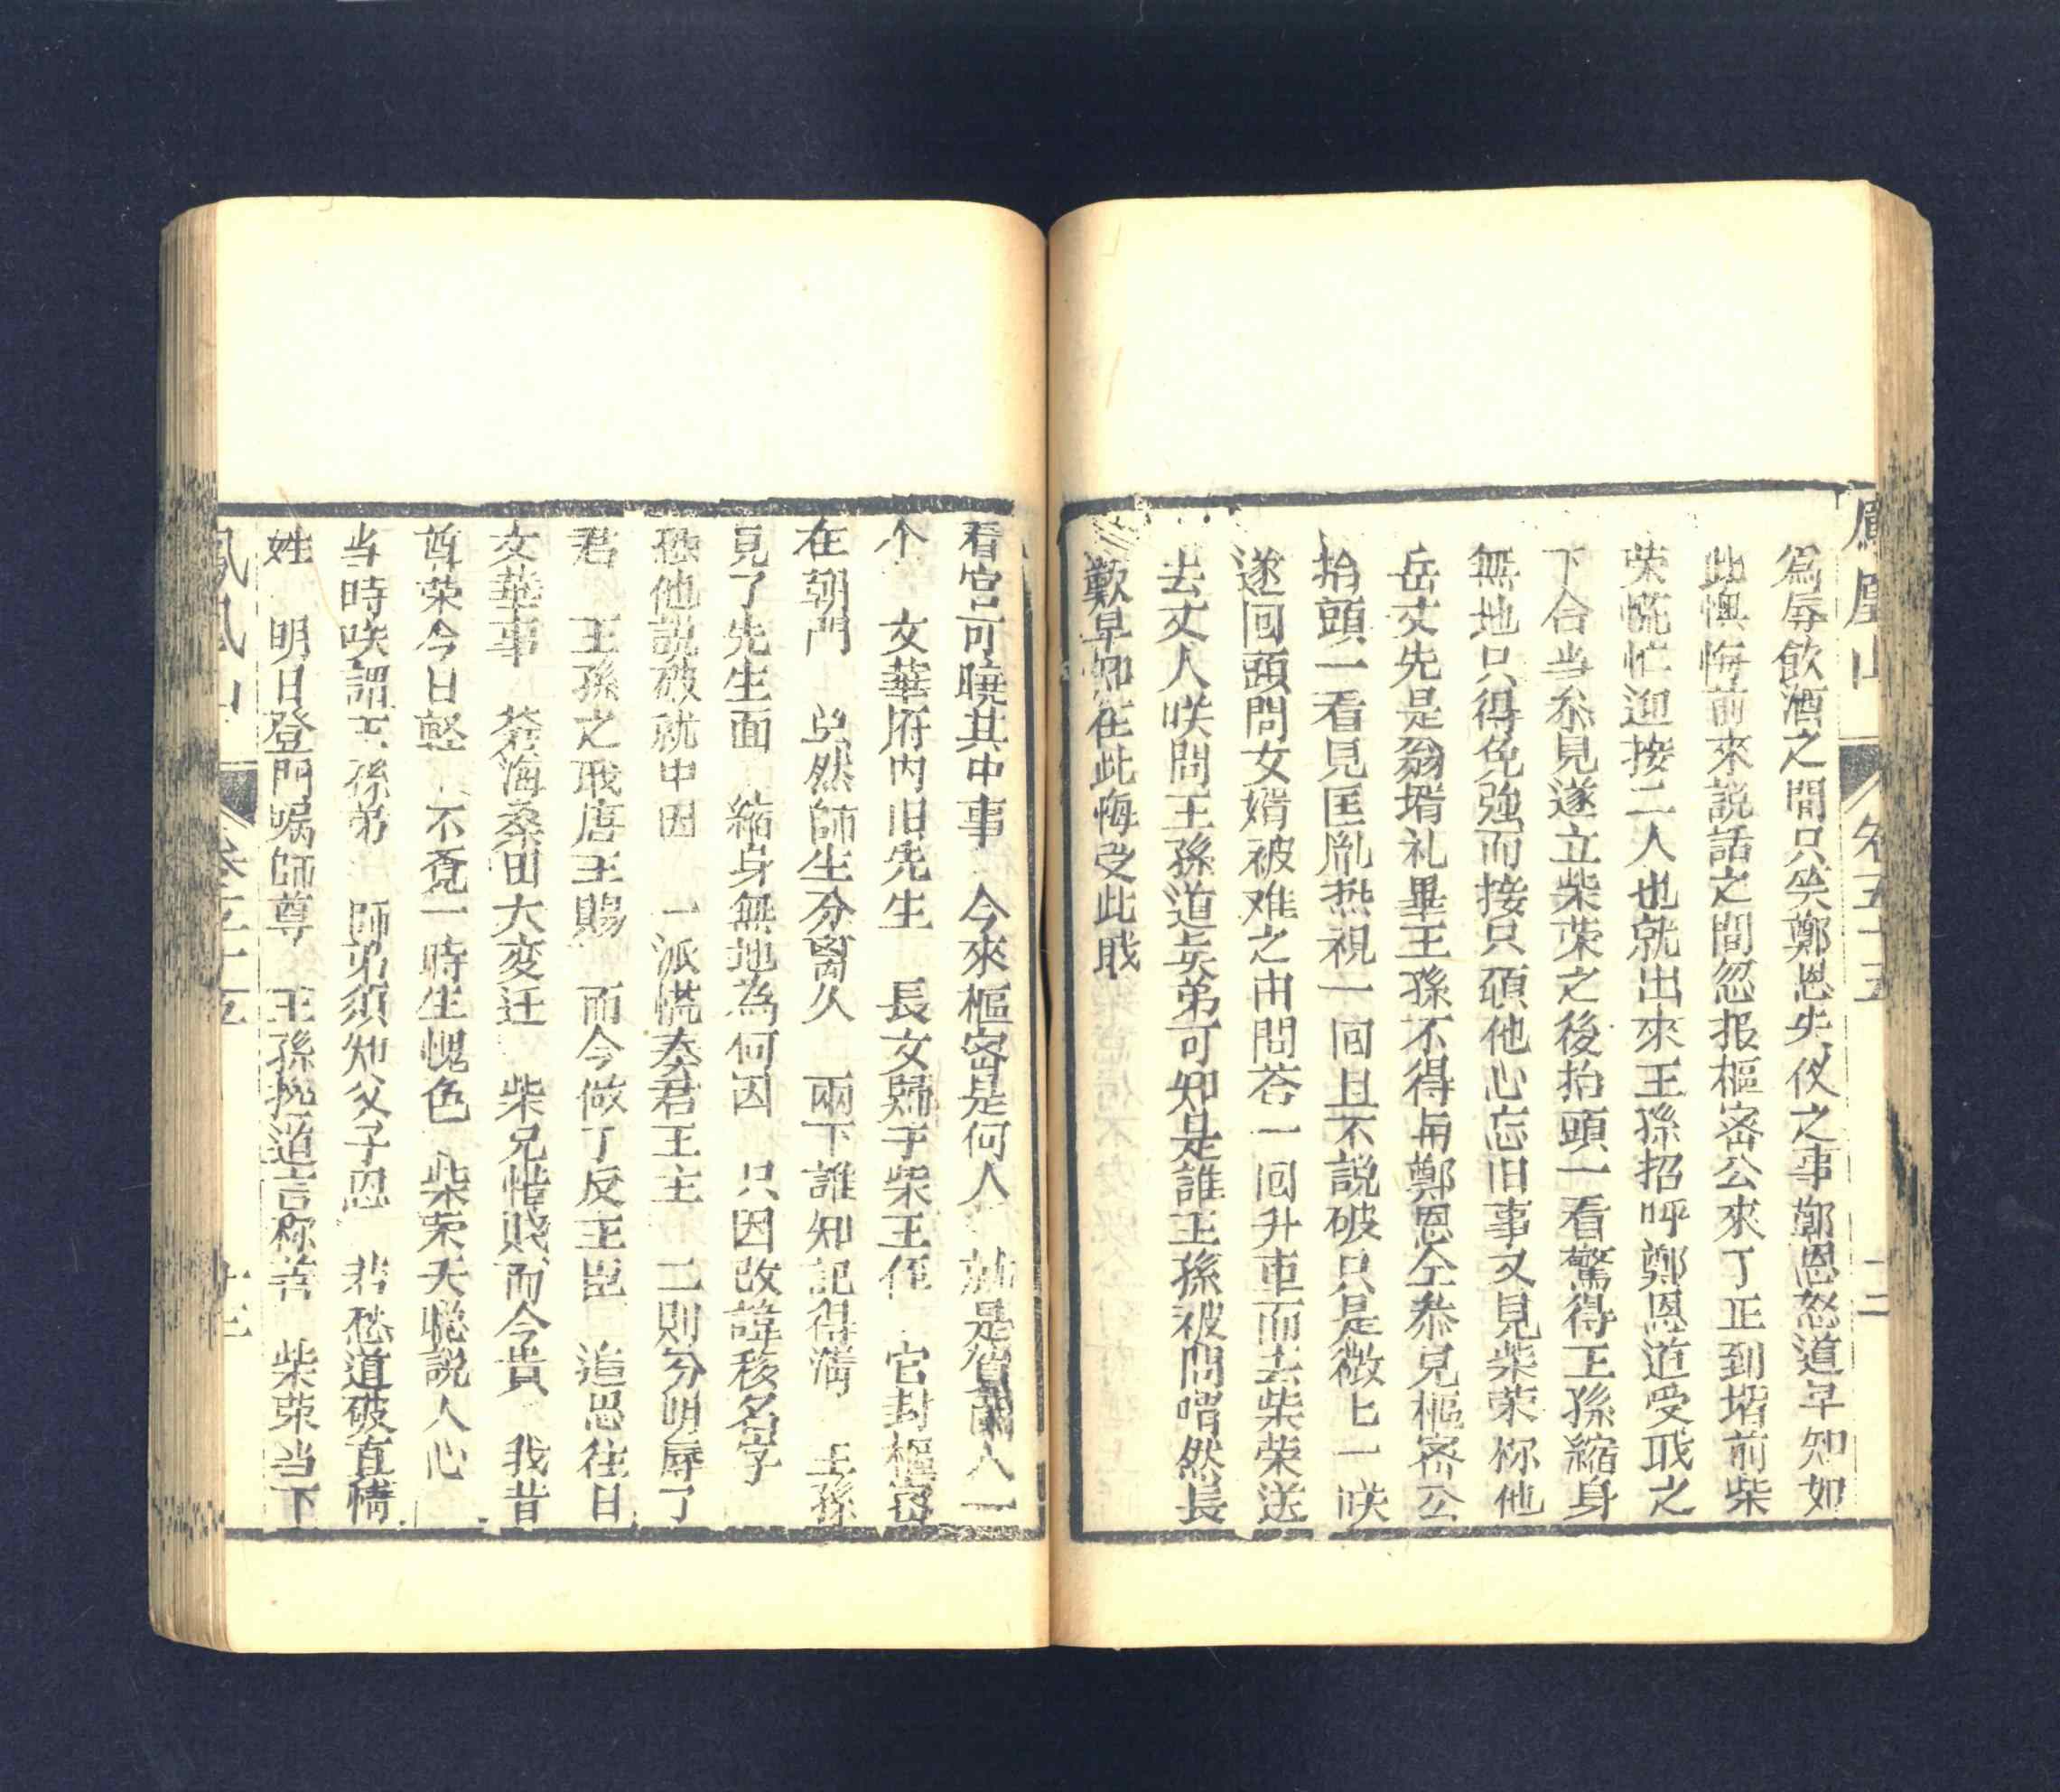 鳳凰山 卷五十五 十二
為辱飲酒之間只笑鄭恩失伩之事鄭恩怒道早知如
此懊悔前來説話之間忽报樞密公來了正到堦前柴
荣慌忙迎接二人也就出來王孫招呼鄭恩道受戝之
下合当叅見遂立柴荣之後抬頭一看驚得王孫縮身
無地只得免強而接只頋他心忘旧事又見柴荣称他
岳丈先是翁壻礼畢王孫不得與鄭恩仝恭見樞密公
抬頭一看見匡胤热視一回且不説破只是微匕一咲
遂回頭問女婿被难之由問荅一回升車而去柴荣送
去丈人咲問王孫道与弟可知是誰王孫被問喟然長
歎早知在此悔受此戝
看官可曉其中事 今來樞密是何人 就是省蘭人一
个 文華府内旧先生 長女歸于柴王侄 官封樞密
在朝門 虽然師生分离久 兩下誰知記得清 王孫
見了先生面 縮身無地為何因 只因改諱移名字
恐他説破就中因 一派慌奏君王主 二則分明辱了
君 王孫之戝唐王賜 而今做了反王臣 追思往日
文華事 蒼海桑田大变迁 柴兄惜賎而今貴 我昔
尊荣今日輕 不覔一時生愧色 柴荣天聪説人心
当時咲謂王孫弟 師弟須知父子恩 若愁道破真情
姓 明日登門嘱師尊 王孫挽道言称善 柴荣当下
鳳凰山 卷五十五 十三